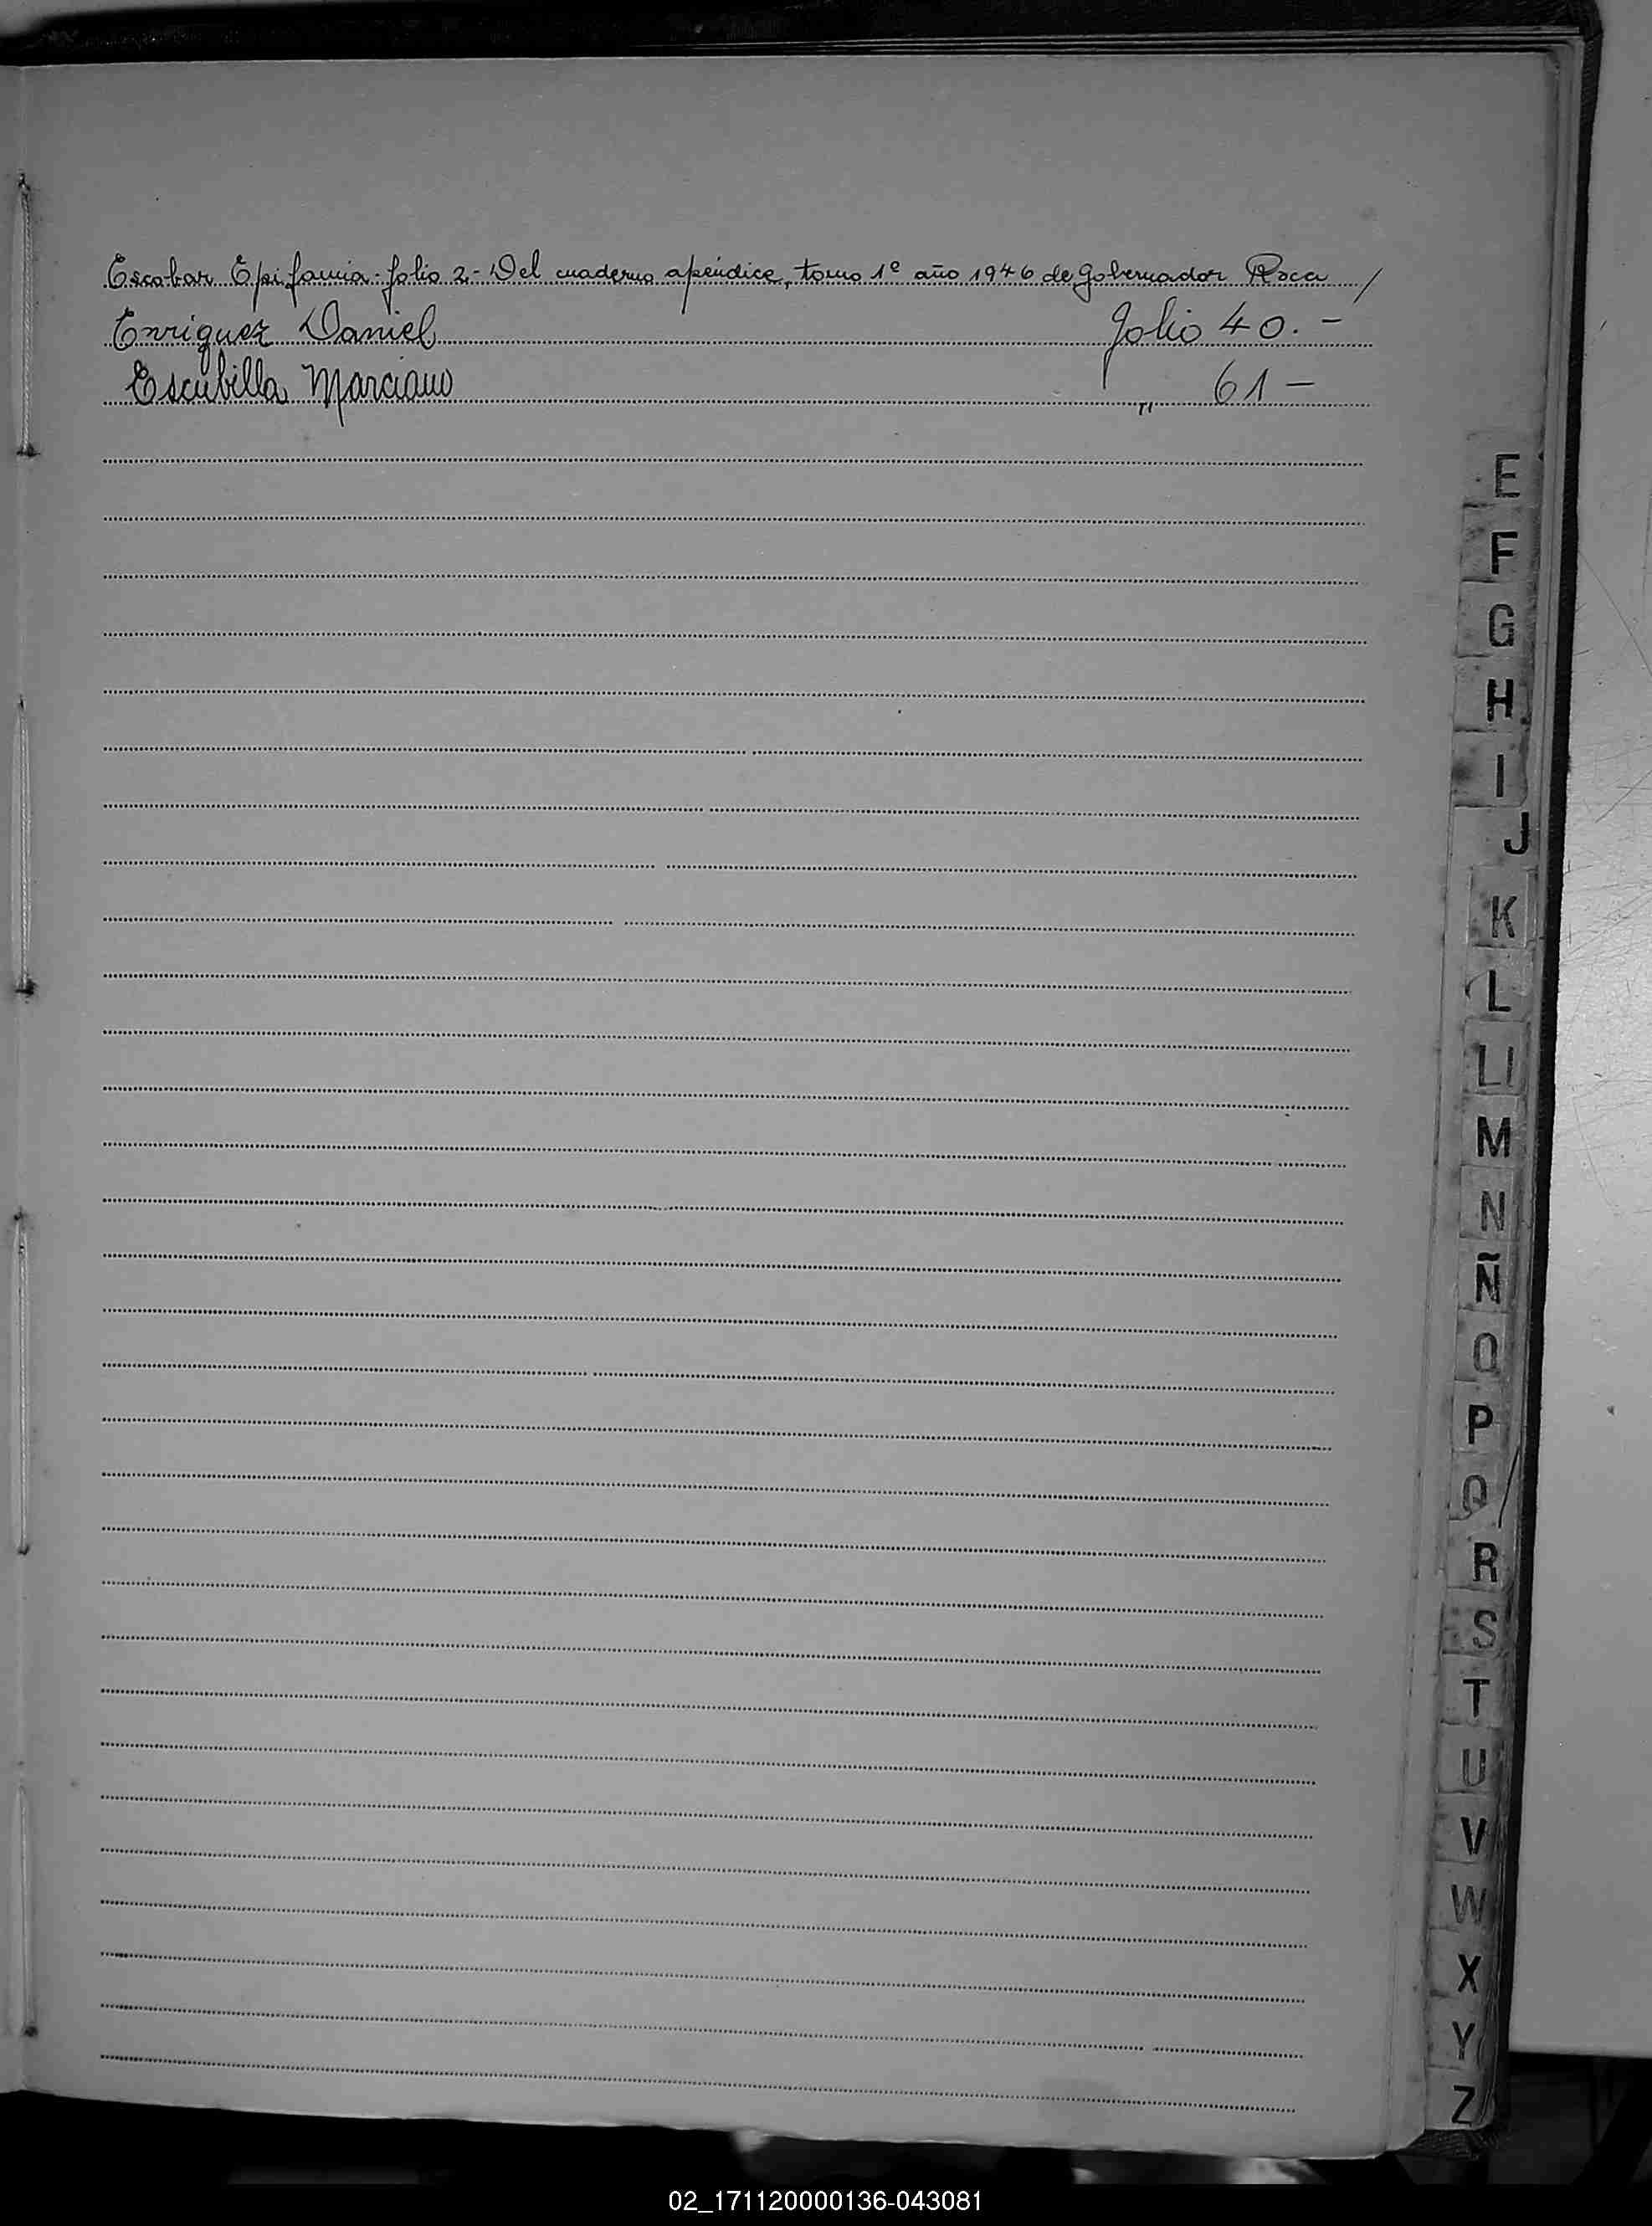 Escobar Epifania - folio 2 - Del cuaderno apéndice, tomo 1º año 1946 de Gobernador Roca /
Enriquez Daniel Folio 40. -
Escubilla Marciano " 61 -
E
F
G
H
I
J
K
L
Ll
M
N
Ñ
O
P
Q
R
S
T
U
V
W
X
Y
Z
02_171120000136-043081